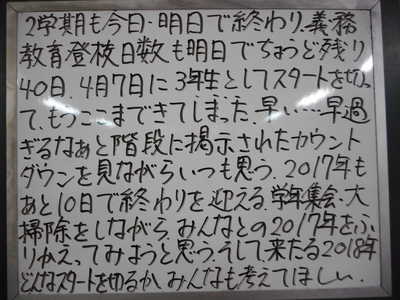 2学期も今日・明日で終わり、義務
教育登校日数も明日でちょうど残り
40日。4月7日に3年生としてスタートを切っ
て、もうここまできてしまった。早い…早過
ぎるなぁと階段に掲示されたカウント
ダウンを見ながらいつも思う。2017年も
あと10日で終わりを迎える。学年集会・大
掃除をしながら、みんなとの2017年をふ
りかえってみようと思う。そして来たる2018年
どんなスタートを切るか、みんなも考えてほしい。